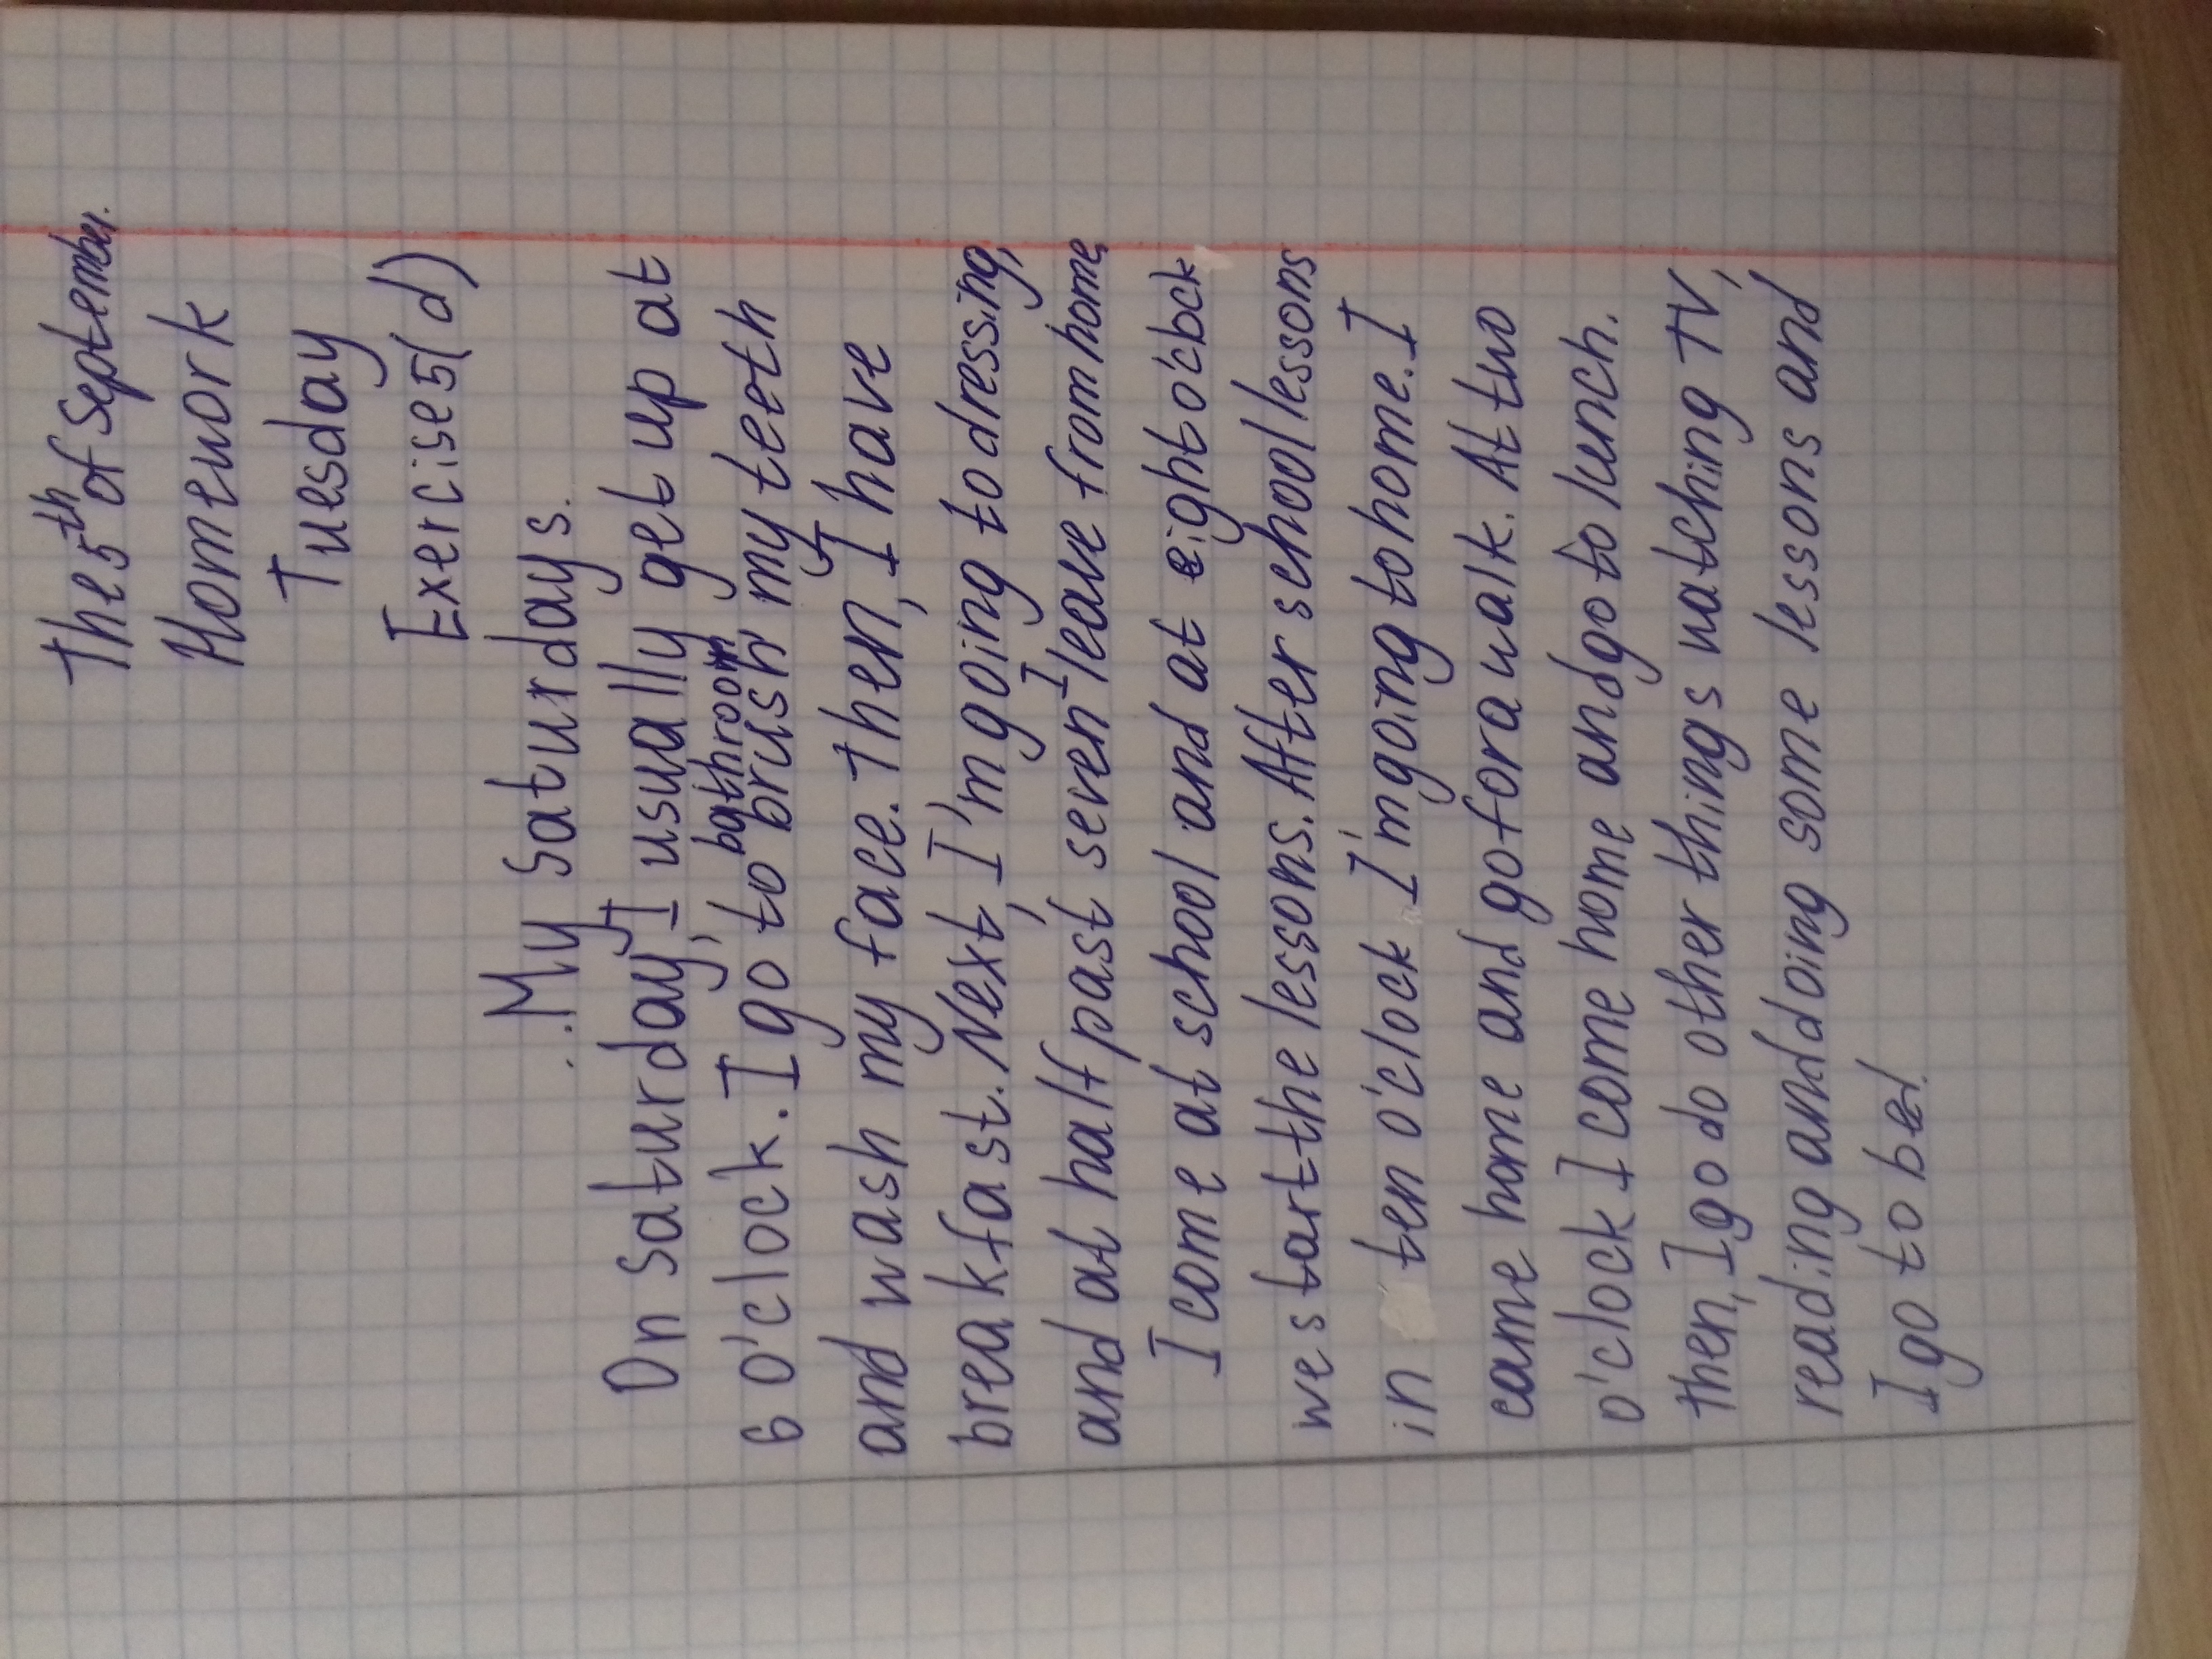 The 5th of September.
Homework
Tuesday
Exercise 5(d)
My Saturdays.
On Saturday, I usually get up at
6 o'clock. I go to bathroom brush my teeth
and wash my face. Then, I have
breakfast. Next, I'm going to dressing,
and at half past seven I leave from home,
I come at school and at eight o'clock
we start the lessons. After school lessons
in ten o'clock I'm going to home. I
came home and go for a walk. At two
o'clock I come home and go to lunch.
Then, I go do other things watching TV,
reading and doing some lessons and
I go to bed.